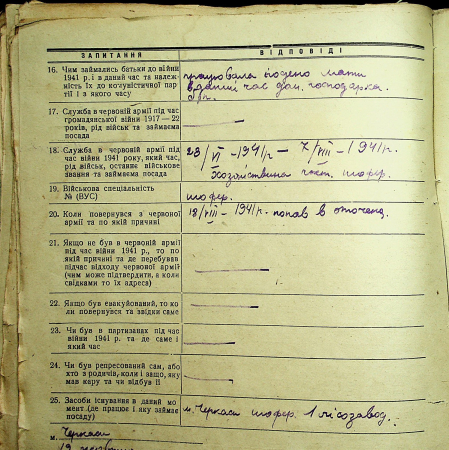 ЗАПИТАННЯ
ВІДПОВІДІ
16. Чим займались батьки до війни
1941 р. і в даний час та належ-
ність їх до комуністичної пар-
тії і з якого часу
працювала мати
в даний час дом. господарка.
17. Служба в червоній армії під час
громадянської війни 1917—22
років, рід військ та займаєма
посада
—
18. Служба в червоній армії під
час війни 1941 року, який час,
рід військ, останнє військове
звання та займаєма посада
23/VI - 1941 р — 7/VIII - 1941 р.
Хозяйствена част. шофер.
19. Військова спеціальність
№ (ВУС)
шофер.
20. Коли повернувся з червоної
армії та по якій причині
12/VIII - 1941 р. попав в оточенн.
21. Якщо не був в червоній армії
під час війни 1941 р., то по
якій причині та де перебував
підчас відходу червоної армії
(чим може підтвердити, а коли
свідками то їх адреса)
—
22. Якщо був евакуйований, то ко
ли повернувся та звідки саме
—
23. Чи був в партизанах під час
війни 1941 р. та де саме і
який час
—
24. Чи був репресований сам, або
хто з родичів, коли і защо, яку
мав кару та чи відбув її
—
25. Засоби існування в даний мо-
мент (де працює і яку займає
посаду)
м. Черкаси шофер. 1 лісозавод.
м. Черкаси
19